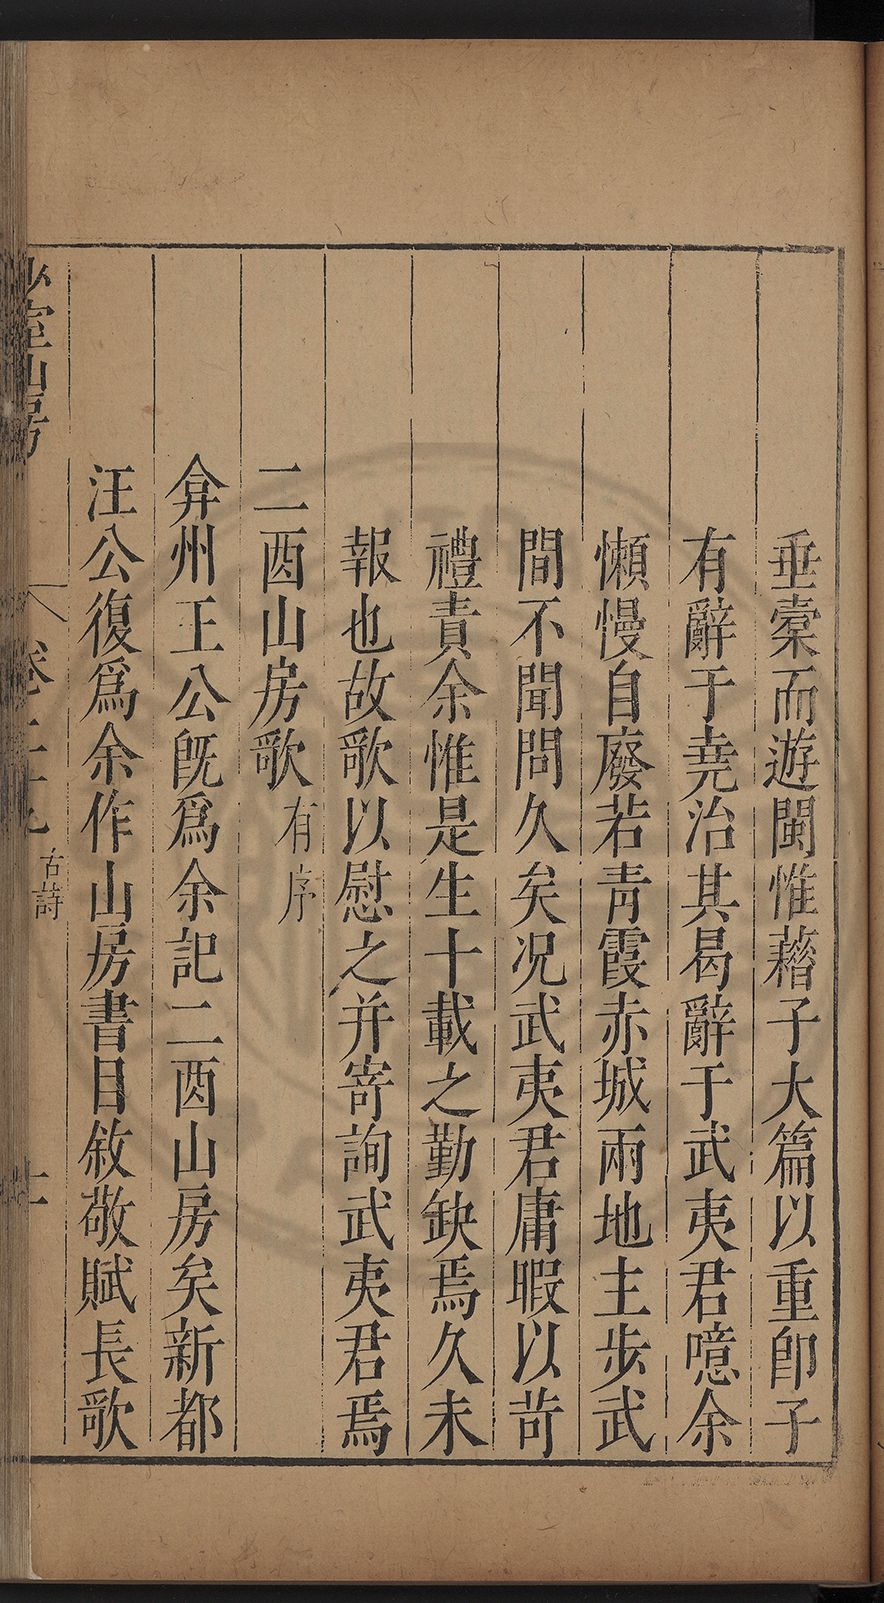 垂橐而遊閩惟藉子大篇以重卽子
有辭于堯治其曷辭于武夷君噫余
懶慢自廢若青霞赤城兩地主步武
間不聞問久矣况武夷君庸暇以苛
禮責余惟是生十載之勤缺焉久未
報也故歌以慰之并寄詢武夷君焉
二酉山房歌有序
弇州王公旣爲余記二酉山房矣新都
汪公復爲余作山房書目敘敬賦長歌
少室山房
古詩